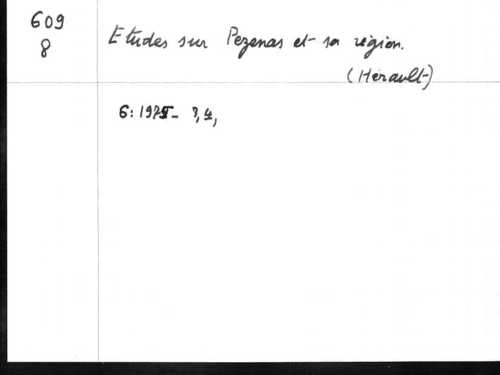 609
8
Etudes sur Pezenas et sa région.
(Hérault)
6: 1975- 3, 4,